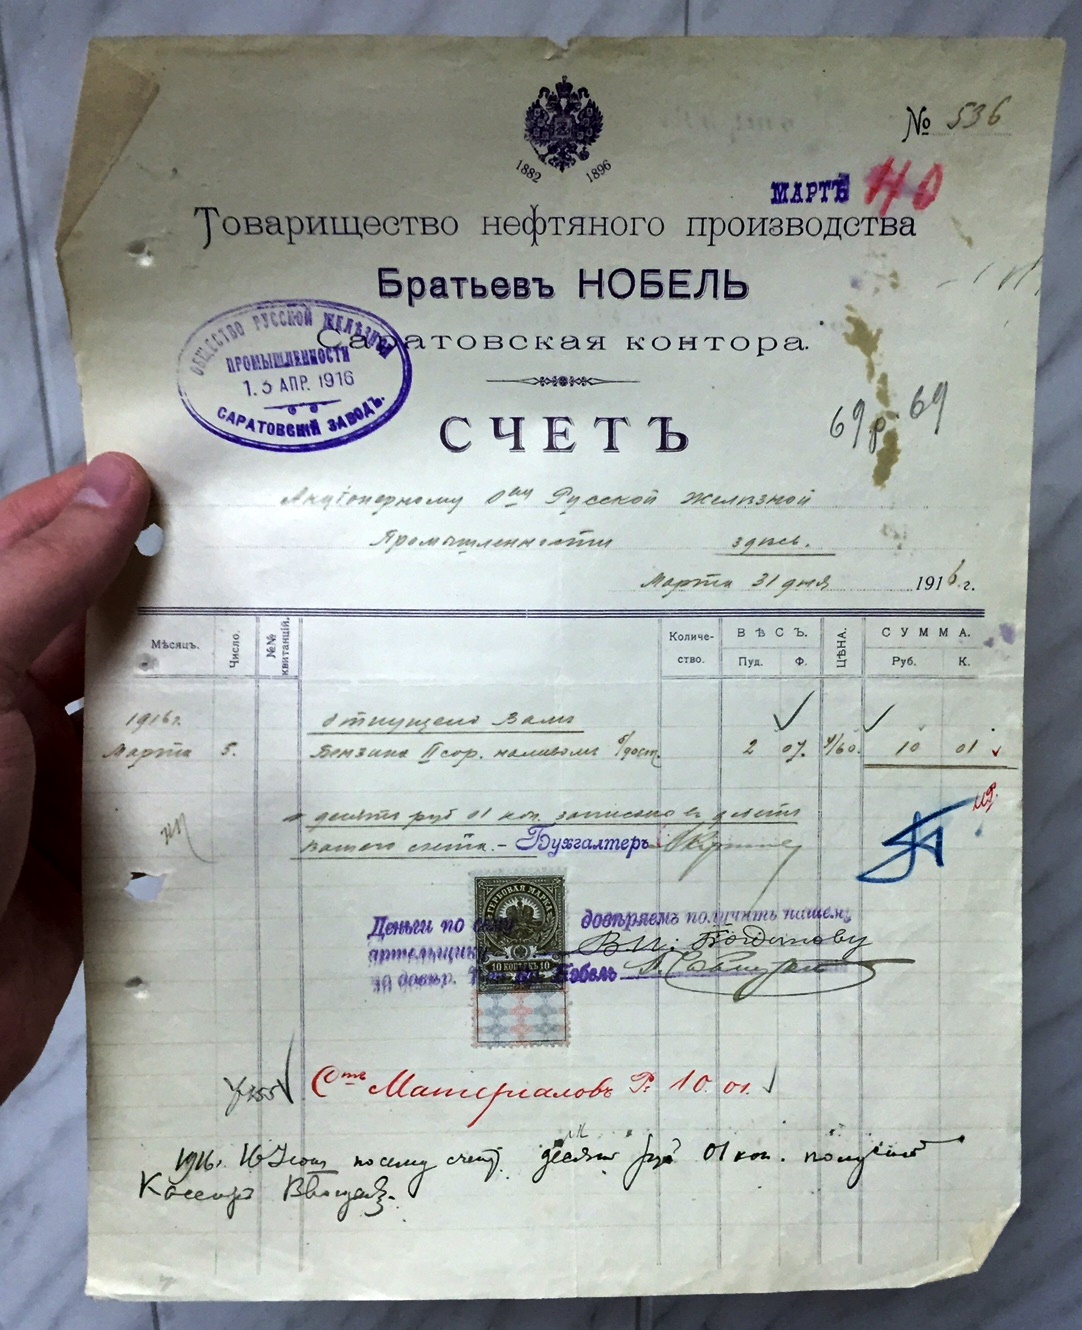 № 536
1882 1896
МАРТЪ
Товарищество нефтяного производства
Братьевъ НОБЕЛЬ
Саратовская контора.
ОБЩЕСТВО РУССКОЙ ЖЕЛѢЗНОЙ
ПРОМЫШЛЕННОСТИ
13 АПР. 1916
САРАТОВСКІЙ ЗАВОДЪ.
69 р. 69
СЧЕТЪ
Акціонерному О-ву Русской Желѣзной
Промышленности здѣсь.
Марта 31 дня 1916 г.
Мѣсяцъ. Число. №№ квитанцій. Количе-ство. ВѢСЪ. Пуд. Ф. ЦѢНА. СУММА. Руб. К.
1916 г. Отпущено Вамъ
Марта 5. Бензина II сор. наливомъ 2 07. 4/60. 10 01
десять руб 01 коп. записано въ дебетъ
Вашего счета. — Бухгалтеръ
Деньги по сему довѣряемъ получить нашему
артельщику В. И. Богданову
по довѣр. Т-ва Бр. Нобель
ГЕРБОВАЯ МАРКА
10 КОПѢЕКЪ 10
Сч Матеріаловъ Р. 10. 01.
1916 г. по сему счету десять руб 01 коп. получилъ
Кассиръ